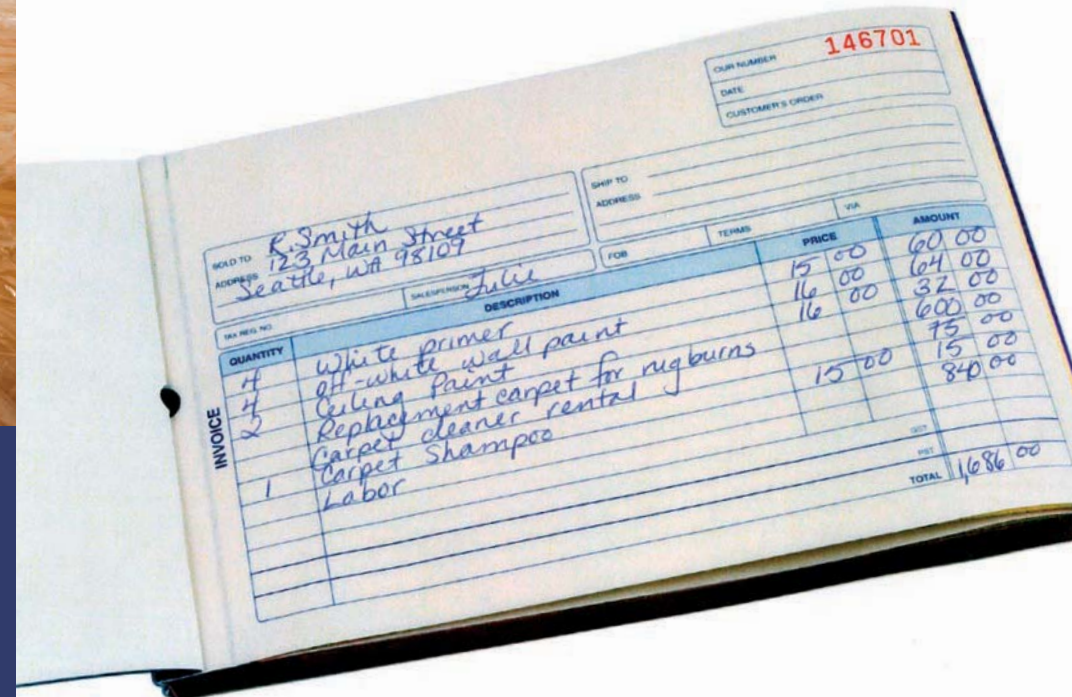 OUR NUMBER 146701
DATE
CUSTOMER'S ORDER
SOLD TO R. Smith
ADDRESS 123 Main Street
Seattle, WA 98109
SHIP TO
ADDRESS
TAX REG. NO. SALESPERSON Julie FOB TERMS VIA
QUANTITY DESCRIPTION PRICE AMOUNT
4 White primer 15 00 60 00
4 Off-white wall paint 16 00 64 00
2 Ceiling Paint 16 00 32 00
Replacement carpet for rug burns 600 00
Carpet cleaner rental 75 00
1 Carpet Shampoo 15 00 15 00
Labor 840 00
GST
PST
TOTAL 1,686 00
INVOICE